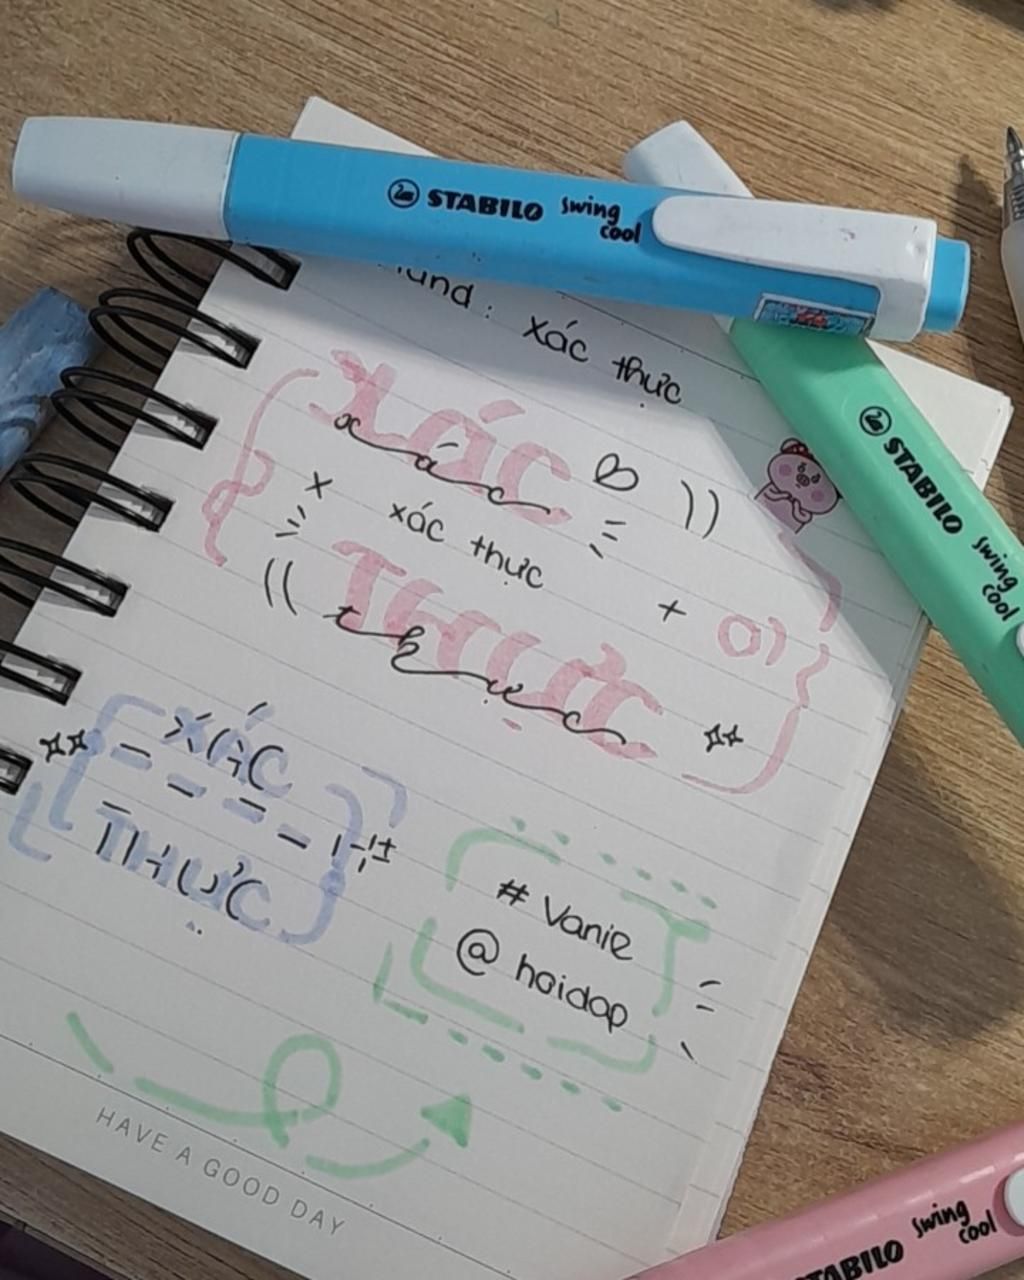 STABILO swing cool
xác thực
XÁC
xác
xác thực
THỰC
thực
STABILO swing cool
XÁC
THỰC
# Vanie
@ hoidap
HAVE A GOOD DAY
STABILO swing cool